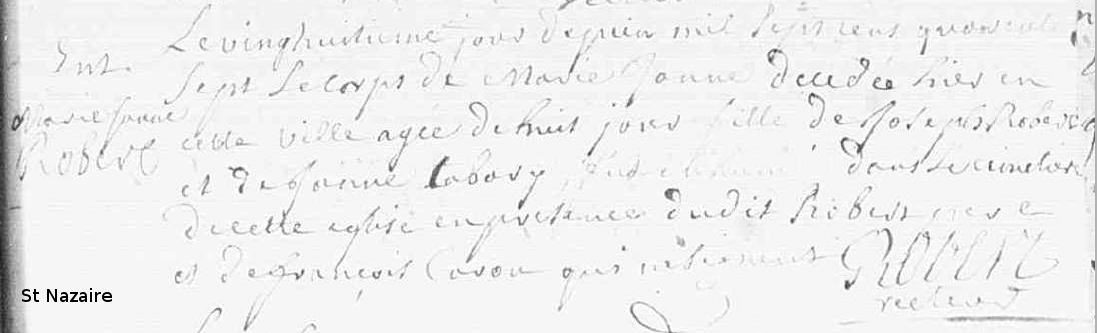 Ent.
Marie Janne
Robert
Le vinghuitieme jour de juin mil sept cens quarente
sept Le corps de Marie Janne decedée hier en
cette ville agée de huit jours fille de Joseph Robert
et de Janne Labory fud inhumé dans Le cimetiere
de cette eglise en presence dudit Robert pere
et de François Caron qui ne signent
Robert
recteur
St Nazaire